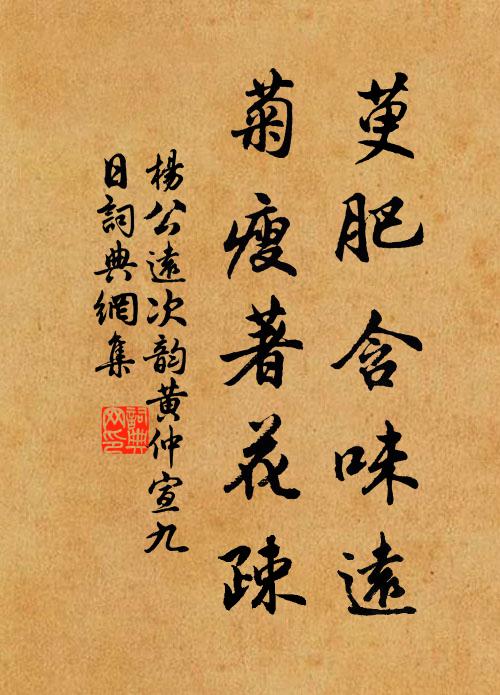 萸肥含味遠
菊瘦著花疎
楊公遠次韵黄仲宣九
日詞典網集
詞典网印